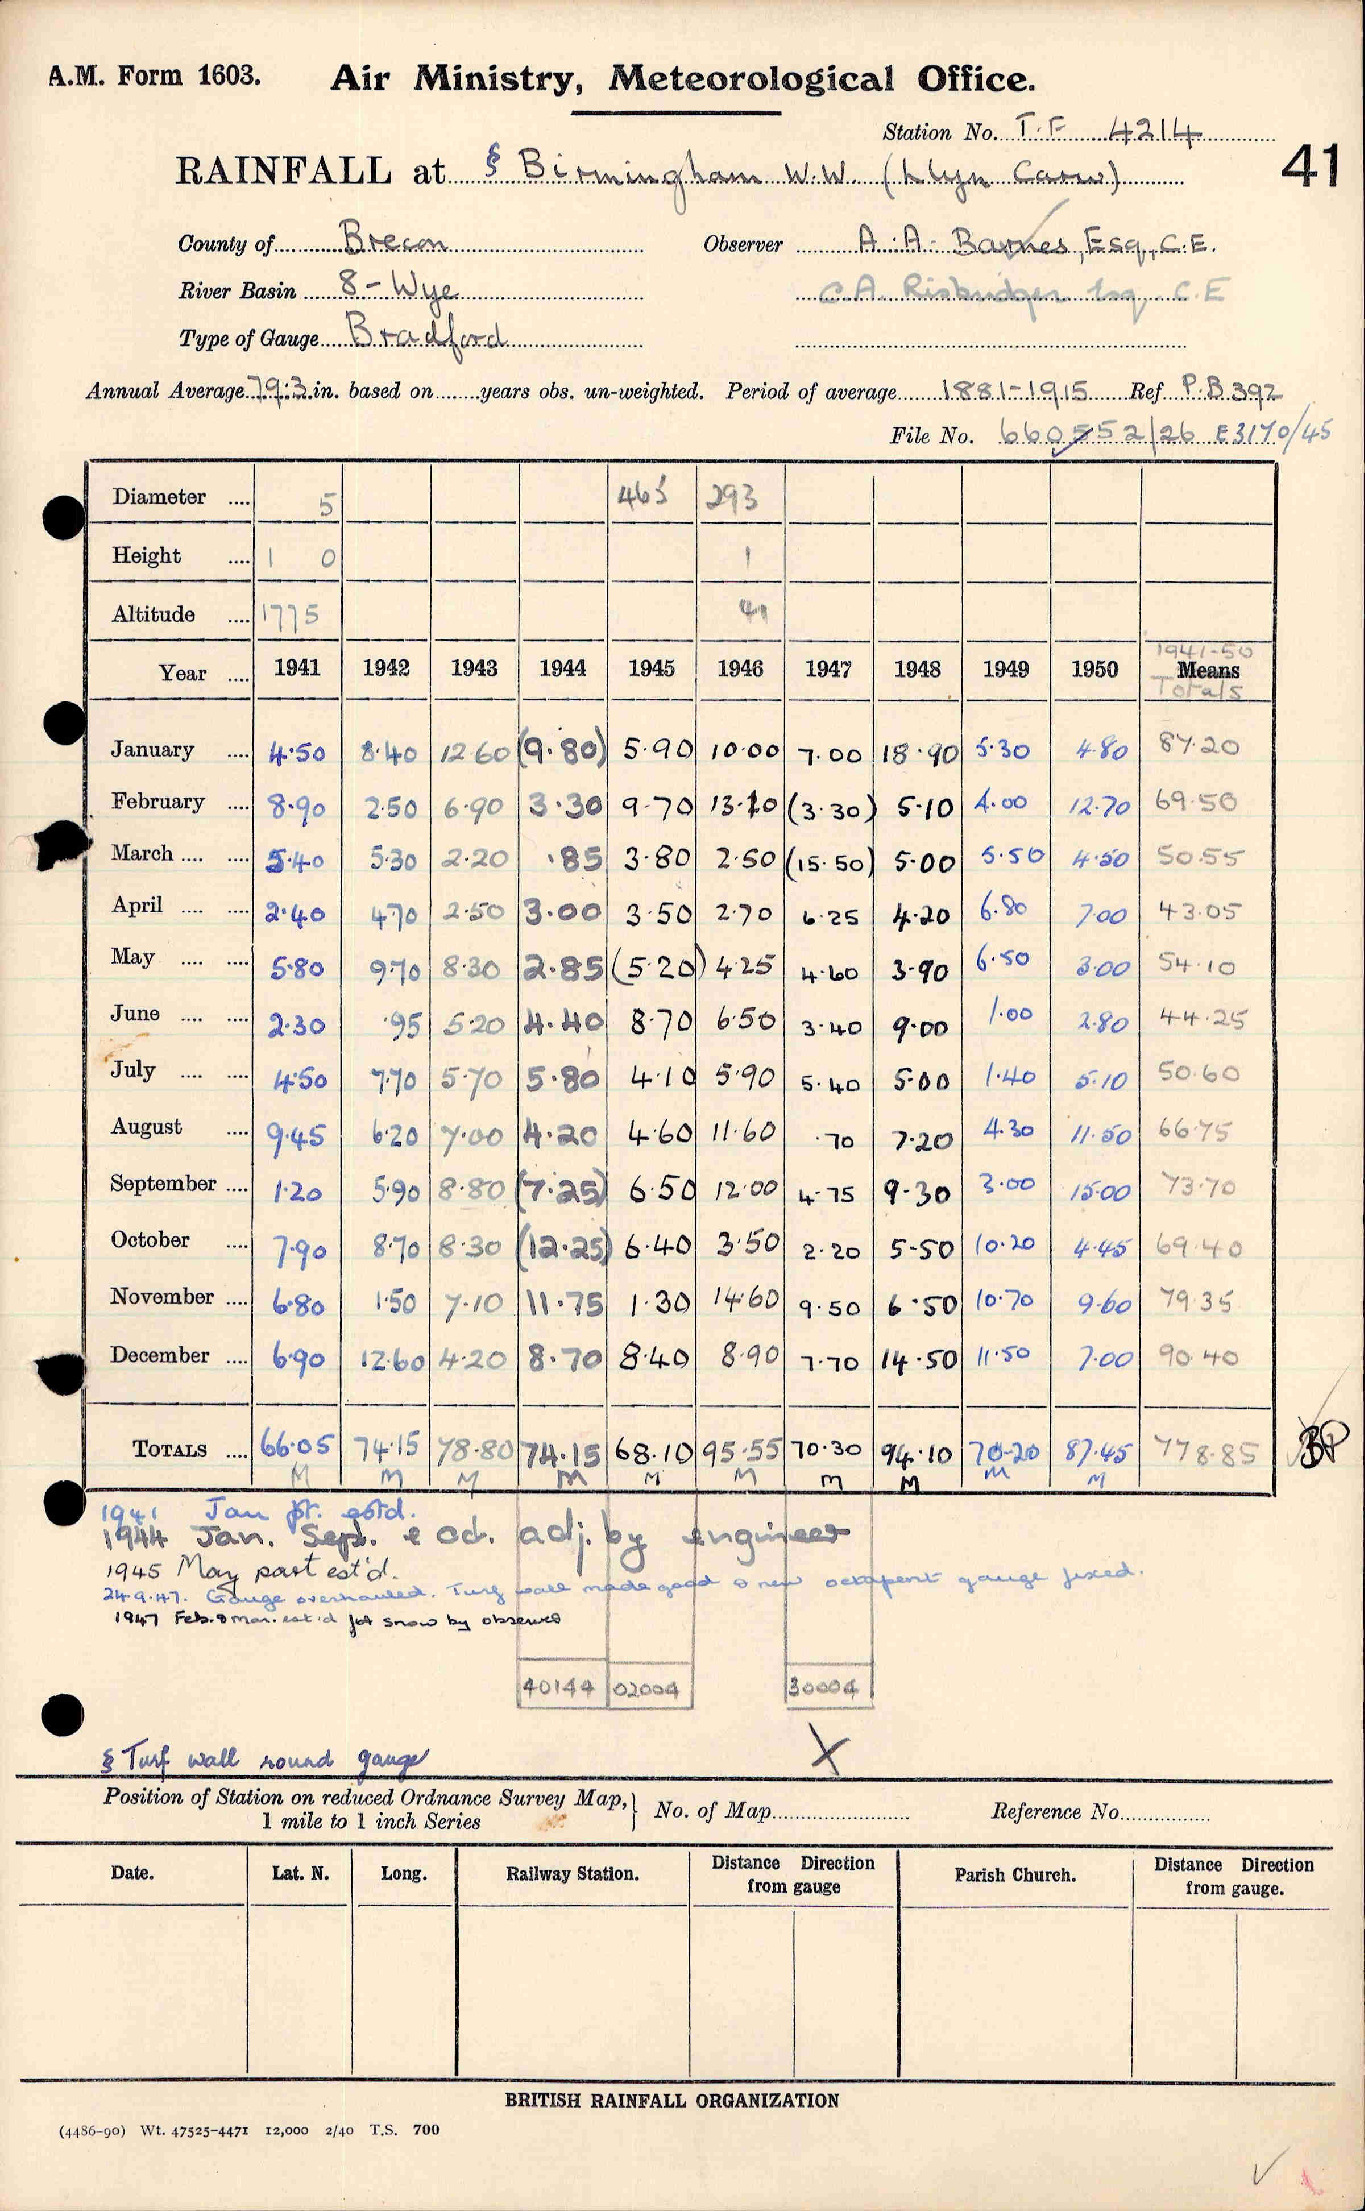 A.M. Form 1603. Air Ministry, Meteorological Office.
Station No. T.F 4214
41
RAINFALL at § Birmingham W.W. (Llyn Carw)
County of Brecon Observer A.A. Barnes, Esq, C.E.
River Basin 8 - Wye C.A. Risbridger Esq. C.E
Type of Gauge Bradford
Annual Average 79.3 in. based on years obs. un-weighted. Period of average 1881-1915 Ref P.B 392
File No. 660552/26 E3170/45
Diameter 5 465 293
Height 1 0 1
Altitude 1775 41
Year 1941 1942 1943 1944 1945 1946 1947 1948 1949 1950 1941-50 Means Totals
January 4.50 8.40 12.60 (9.80) 5.90 10.00 7.00 18.90 5.30 4.80 87.20
February 8.90 2.50 6.90 3.30 9.70 13.10 (3.30) 5.10 4.00 12.70 69.50
March 5.40 5.30 2.20 .85 3.80 2.50 (15.50) 5.00 5.50 4.50 50.55
April 2.40 4.70 2.50 3.00 3.50 2.70 6.25 4.20 6.80 7.00 43.05
May 5.80 9.70 8.30 2.85 (5.20) 4.25 4.60 3.90 6.50 3.00 54.10
June 2.30 .95 5.20 4.40 8.70 6.50 3.40 9.00 1.00 2.80 44.25
July 4.50 7.70 5.70 5.80 4.10 5.90 5.40 5.00 1.40 5.10 50.60
August 9.45 6.20 7.00 4.20 4.60 11.60 .70 7.20 4.30 11.50 66.75
September 1.20 5.90 8.80 (7.25) 6.50 12.00 4.75 9.30 3.00 15.00 73.70
October 7.90 8.70 8.30 (12.25) 6.40 3.50 2.20 5.50 10.20 4.45 69.40
November 6.80 1.50 7.10 11.75 1.30 14.60 9.50 6.50 10.70 9.60 79.35
December 6.90 12.60 4.20 8.70 8.40 8.90 7.70 14.50 11.50 7.00 90.40
TOTALS 66.05 74.15 78.80 74.15 68.10 95.55 70.30 94.10 70.20 87.45 778.85
M M M M M M M M M M
1941 Jan pt. estd.
1944 Jan. Sept. & Oct. adj. by engineer
1945 May part est'd.
24.9.47. Gauge overhauled. Turf wall made good & new octapent gauge fixed.
1947 Feb. & Mar. est'd for snow by observer
40144 02004 30004
X
§ Turf wall round gauge
Position of Station on reduced Ordnance Survey Map, 1 mile to 1 inch Series No. of Map Reference No.
Date. Lat. N. Long. Railway Station. Distance Direction from gauge Parish Church. Distance Direction from gauge.
BRITISH RAINFALL ORGANIZATION
(4486-90) Wt. 47525-4471 12,000 2/40 T.S. 700